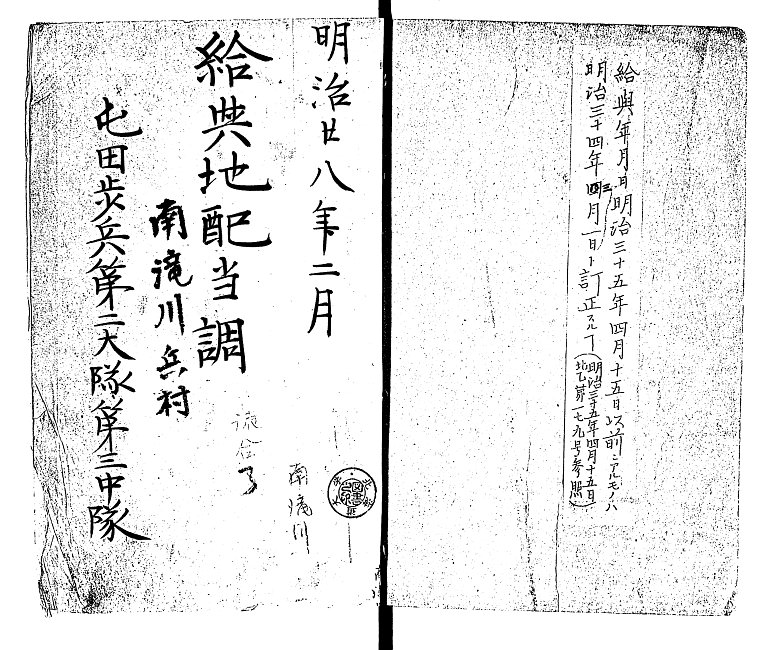 給與年月日明治三十五年四月十五日以前ニアルモノハ
明治三十四年三月一日ト訂正スルー(明治三十五年四月十五日
北乙第一七九号参照)
明治廿八年二月
給與地配当調
南滝川兵村
屯田歩兵第二大隊第三中隊
南滝川